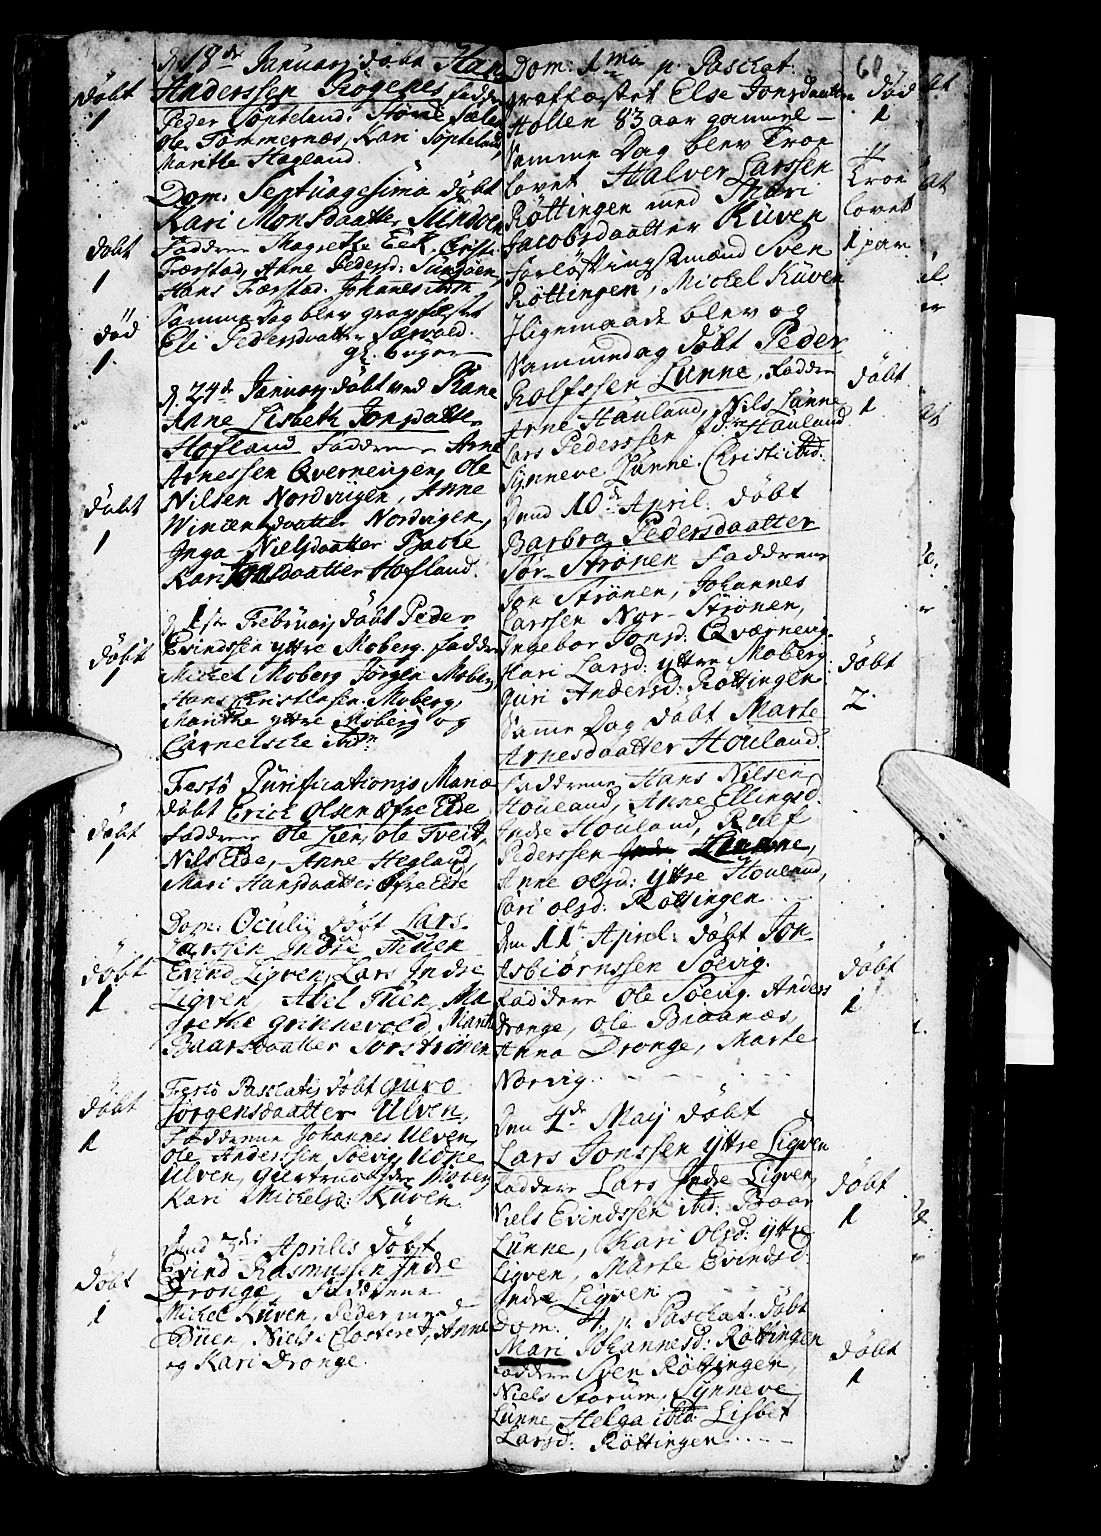 d. 18de Januarij døbt Han
Anderssen Røgenes fadder
Peder Søpteland: Størne Sælen
Ole Tømmernæs, Kari Søpteland,
Maritha Hageland.
Døbt
1
Dom. Septuagesima døbt
Kari Monsdaatter
Faddrene Magrethe Eek, Christi
Færstad, Anne Pedersd:
Hans Færstad. Johanes ibdm
døbt
1
Samme dag blev grafæstet
Eli Pedersdaatter Sævold.
gl. 6 uger
død
1.
d. 24de Januarij døbt ved Fane
Anne Lisbeth Jonsdatter
Hofland Faddrene Arne
Arnessen Qverneugen, Ole
Nilsen Nordvigen, Anne
daatter Nordvigen,
Inga Nielsdaatter Backe
Kari Jonsdaatter Hofland.
døbt
1
d. 1ste Februarij døbt Peder
Evindssen yttre Moberg. faddre
Michel Moberg Jørgen Moberg,
Hans Christensen Moberg,
Maritha yttre Moberg og
Carnelsche ibdm
døbt
1
Festo Purificationis Mariæ
døbt Erick Olsen Øfre Eide
faddrene Ole Lien, Ole Tveit,
Nils Eide, Anne Hegland,
Mari Hansdaatter Øfre Eide
døbt
1
Dom. Oculij døbt Lars
Larssen Indre Tuen
Evind Ligven, Lars Indre
Ligven, Abel Tuen, Ma
grethe Grinnevold, Marithe
Baarsdaatter Sørstrønen
døbt
1
Festo Paschatij døbt Guro
Jørgensdaatter Ulven,
Faddrene Johannes Ulven
Ole Anderssen Søevig
Ulven, Giertrud Indre Moberg
Kari Michelsd: Kuven.
døbt
1
dend 3die Aprilis døbt
Evind Rasmussen Indre
Dronge, Faddrene
Michel Kuven, Peder
Tuen, Niels Closteret, Anne
og Kari Dronge.
døbt
1
60
Dom: 1ma p. Paschat.
grafføstet Else Jonsdaatter
Hollen 83 aar gammel –
død
1
Samme Dag blev Troe
lovet Halver Larssen
Røttingen med Mari
Jacobsdaatter Kuven
Forløfningsmænd Sven
Røttingen, Michel Kuven
Troe
lovet
1 par.
Iligemaade blev og
Sammedag døbt Peder
Rolfssen Lunne, Faddre
Arne Hauland, Nils Lunne
Lars Pederssen Hauland
Synneve Lunne. Christi ibid.
døbt
1
Dend 10de April: døbt
Barbra Pedersdaatter
Sør-Strønen Faddrene
Jon Strønen, Johannes
Larssen Nor-Strønen,
Ingebor Jonsd: Qværneug.
Kari Larsd: yttre Moberg.
Guri Andersd: Røttingen
døbt
2
Samme Dag døbt Marte
Arnesdaatter Houland.
Faddrene Hans Nilsen
Houland, Anne Ellingsd.
Indre Houland, Rolf
Pederssen Lunne,
Anne Olsd: yttre Houland,
Cari Olsd: Røttingen
den 11te April: døbt Jon
Asbiørnssen Søevig.
Faddere Ole Søevig. Anders
Dronge, Ole Braanæs,
Anna Dronge, Marte
Norvig.
døbt
1
Den 4de Maij døbt
Lars Jonssen yttre Ligven
Faddere Lars Indre Ligven,
Niels Evindssen ibid: Baar
Lunne, Kari Olsd: yttre
Ligven, Marte Evindsd:
Indre Ligven
døbt
1
Dom. 4. p. Paschat. døbt
Mari Johannesd: Røttingen
Faddere Sven Røttingen,
Niels Storum, Synneve
Lunne, Helga ibid: Lisbet
Larsd: Røttingen
døbt
1